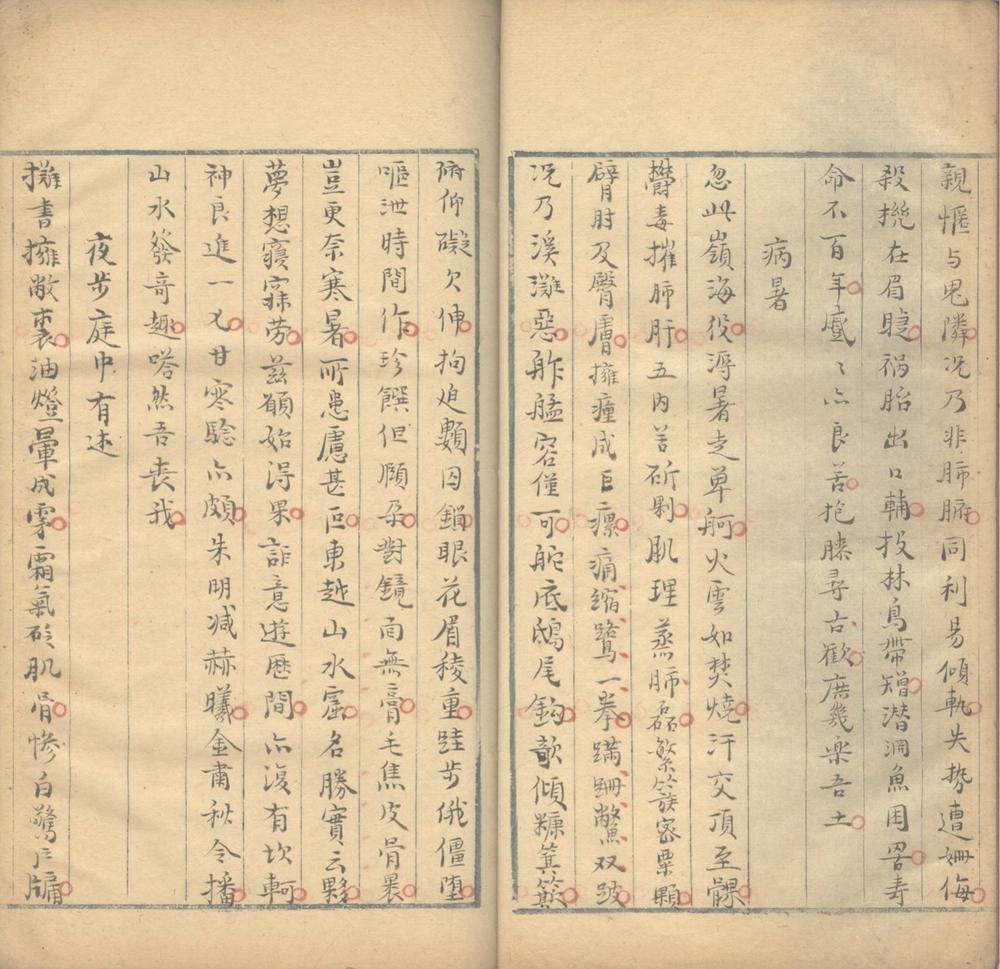 親慪与鬼隣况乃非肺腑同利易傾軌失勢遭姍侮
殺機在眉睫禍胎出口輔投林鳥帶矰潜渊魚困罟壽
命不百年慼〻亦良苦抱膝尋古歡庶幾楽吾土
病暑
忽此嶺海役溽暑走單舸火雲如焚燒汗交頂至髁
欝毒摧肺肝五内苦斫剁肌理蒸肺磊繁簇密粟顆
臂肘及臀膚擁瘇成巨瘰痛縮鷺一拳蹣跚鱉双跛
况乃溪灘惡舴艋容僅可舵底鴟尾鈎欹傾糠箕簸
俯仰礙欠伸拘迫類囚鎖眼花眉稜重跬步俄僵堕
嘔泄時間作珍饌但頤朶對鏡面無膏毛焦皮骨裹
豈更奈寒暑所患慮甚叵東越山水窟名勝實云夥
夢想寢寐劳茲願始得果詎意遊歷間亦復有坎軻
神良進一匕甘寒驗亦頗朱明減赫曦金肅秋令播
山水發奇趣嗒然吾丧我
夜步庭中有述
攤書擁敝裘油燈暈成雺霜氣砭肌骨慘白鶩戸牗